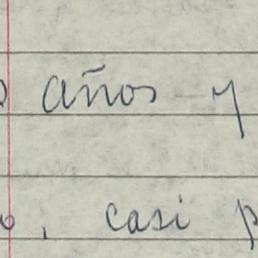 años y
, casi